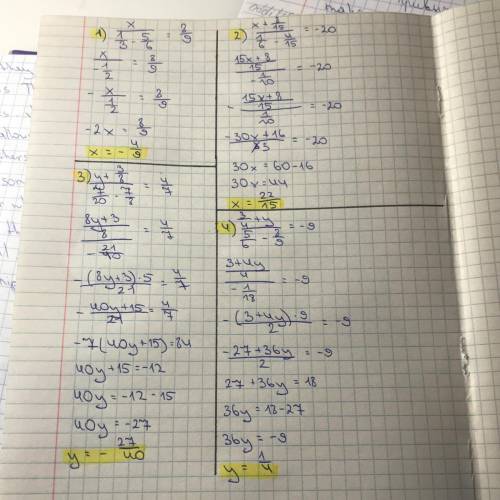 1) x / (1/3 - 5/6) = 8/9
x / (-1/2) = 8/9
- x / (1/2) = 8/9
-2x = 8/9
x = - 4/9
2) (x + 8/15) / (1/6 - 4/15) = -20
((15x+8)/15) / (-1/10) = -20
- ((15x+8)/15) / (1/10) = -20
- (30x+16)/3 = -20
30x = 60-16
30x = 44
x = 22/15
3) (y + 3/8) / (7/20 - 7/8) = 4/7
((8y+3)/8) / (-21/40) = 4/7
- ((8y+3)·5)/21 = 4/7
- (40y+15)/21 = 4/7
-7(40y+15) = 84
40y+15 = -12
40y = -12 - 15
40y = -27
y = - 27/40
4) (3/4 + y) / (5/6 - 8/9) = -9
((3+4y)/4) / (-1/18) = -9
- ((3+4y)·9)/2 = -9
- (27+36y)/2 = -9
27+36y = 18
36y = 18-27
36y = -9
y = 1/4